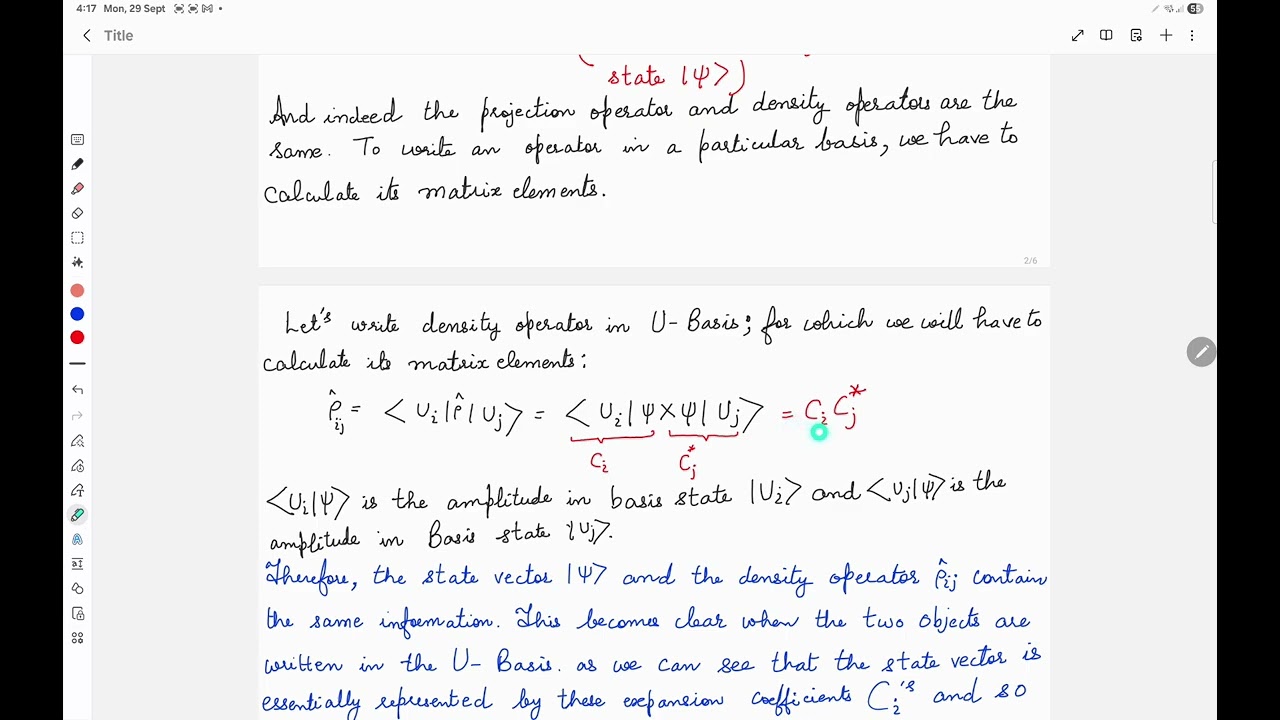 4:17 Mon, 29 Sept
55
Title
state |ψ⟩)
And indeed the projection operator and density operators are the
same. To write an operator in a particular basis, we have to
calculate its matrix elements.
2/6
Let's write density operator in U-Basis; for which we will have to
calculate its matrix elements:
ρ̂ᵢⱼ = ⟨Uᵢ|ρ̂|Uⱼ⟩ = ⟨Uᵢ|ψ⟩⟨ψ|Uⱼ⟩ = CᵢCⱼ*
Cᵢ Cⱼ*
⟨Uᵢ|ψ⟩ is the amplitude in basis state |Uᵢ⟩ and ⟨Uⱼ|ψ⟩ is the
amplitude in Basis state |Uⱼ⟩.
Therefore, the state vector |ψ⟩ and the density operator ρ̂ᵢⱼ contain
the same information. This becomes clear when the two objects are
written in the U-Basis. as we can see that the state vector is
essentially represented by these expansion coefficients Cᵢ's and so